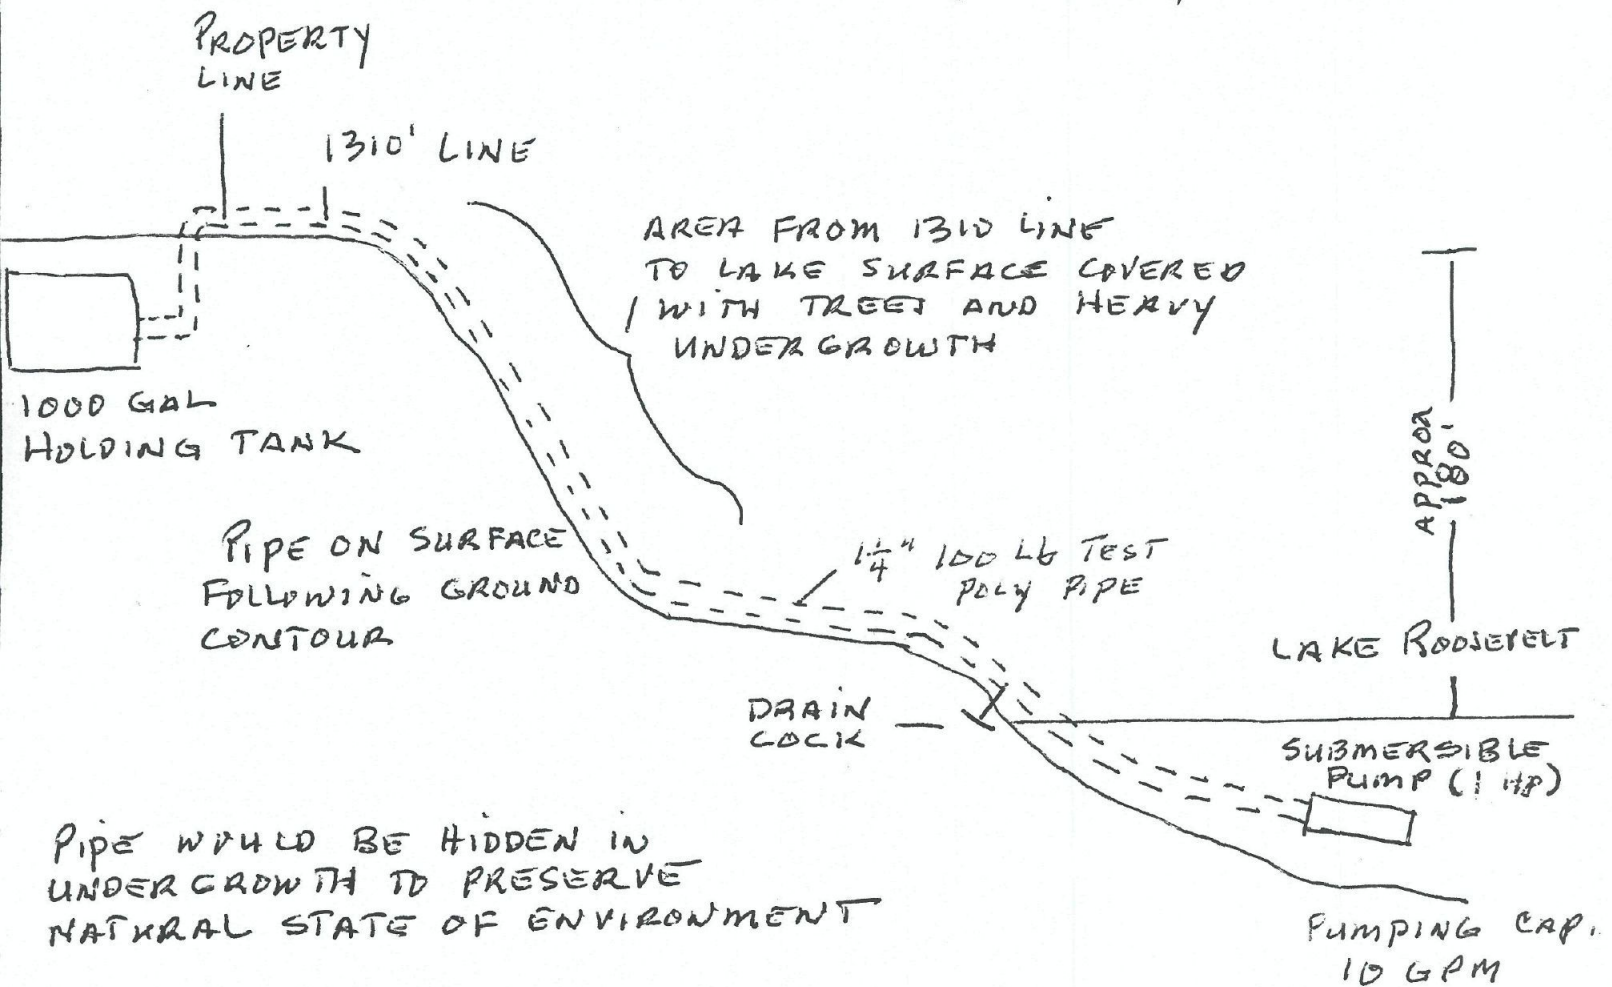 PROPERTY
LINE
1310' LINE
AREA FROM 1310 LINE
TO LAKE SURFACE COVERED
WITH TREES AND HEAVY
UNDERGROWTH
1000 GAL
HOLDING TANK
APPROX
180'
PIPE ON SURFACE
FOLLOWING GROUND
CONTOUR
1 1/4" 100 Lb TEST
POLY PIPE
LAKE ROOSEVELT
DRAIN
COCK
SUBMERSIBLE
PUMP (1 HP)
PIPE WOULD BE HIDDEN IN
UNDERGROWTH TO PRESERVE
NATURAL STATE OF ENVIRONMENT
PUMPING CAP.
10 GPM